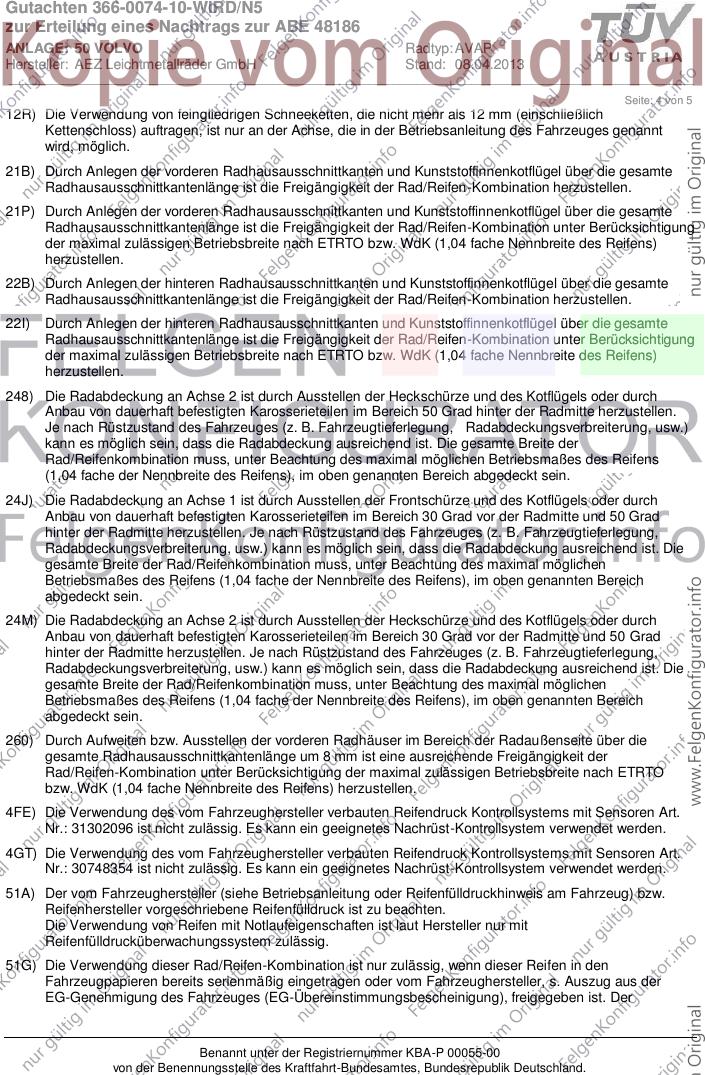 Gutachten 366-0074-10-WIRD/N5
zur Erteilung eines Nachtrags zur ABE 48186
ANLAGE: 50 VOLVO
Radtyp: AVAR
Hersteller: AEZ Leichtmetallräder GmbH
Stand: 08.04.2013
TÜV
AUSTRIA
Kopie vom Original
Seite: 4 von 5
12R) Die Verwendung von feingliedrigen Schneeketten, die nicht mehr als 12 mm (einschließlich
Kettenschloss) auftragen, ist nur an der Achse, die in der Betriebsanleitung des Fahrzeuges genannt
wird, möglich.
21B) Durch Anlegen der vorderen Radhausausschnittkanten und Kunststoffinnenkotflügel über die gesamte
Radhausausschnittkantenlänge ist die Freigängigkeit der Rad/Reifen-Kombination herzustellen.
21P) Durch Anlegen der vorderen Radhausausschnittkanten und Kunststoffinnenkotflügel über die gesamte
Radhausausschnittkantenlänge ist die Freigängigkeit der Rad/Reifen-Kombination unter Berücksichtigung
der maximal zulässigen Betriebsbreite nach ETRTO bzw. WdK (1,04 fache Nennbreite des Reifens)
herzustellen.
22B) Durch Anlegen der hinteren Radhausausschnittkanten und Kunststoffinnenkotflügel über die gesamte
Radhausausschnittkantenlänge ist die Freigängigkeit der Rad/Reifen-Kombination herzustellen.
22I) Durch Anlegen der hinteren Radhausausschnittkanten und Kunststoffinnenkotflügel über die gesamte
Radhausausschnittkantenlänge ist die Freigängigkeit der Rad/Reifen-Kombination unter Berücksichtigung
der maximal zulässigen Betriebsbreite nach ETRTO bzw. WdK (1,04 fache Nennbreite des Reifens)
herzustellen.
248) Die Radabdeckung an Achse 2 ist durch Ausstellen der Heckschürze und des Kotflügels oder durch
Anbau von dauerhaft befestigten Karosserieteilen im Bereich 50 Grad hinter der Radmitte herzustellen.
Je nach Rüstzustand des Fahrzeuges (z. B. Fahrzeugtieferlegung, Radabdeckungsverbreiterung, usw.)
kann es möglich sein, dass die Radabdeckung ausreichend ist. Die gesamte Breite der
Rad/Reifenkombination muss, unter Beachtung des maximal möglichen Betriebsmaßes des Reifens
(1,04 fache der Nennbreite des Reifens), im oben genannten Bereich abgedeckt sein.
24J) Die Radabdeckung an Achse 1 ist durch Ausstellen der Frontschürze und des Kotflügels oder durch
Anbau von dauerhaft befestigten Karosserieteilen im Bereich 30 Grad vor der Radmitte und 50 Grad
hinter der Radmitte herzustellen. Je nach Rüstzustand des Fahrzeuges (z. B. Fahrzeugtieferlegung,
Radabdeckungsverbreiterung, usw.) kann es möglich sein, dass die Radabdeckung ausreichend ist. Die
gesamte Breite der Rad/Reifenkombination muss, unter Beachtung des maximal möglichen
Betriebsmaßes des Reifens (1,04 fache der Nennbreite des Reifens), im oben genannten Bereich
abgedeckt sein.
24M) Die Radabdeckung an Achse 2 ist durch Ausstellen der Heckschürze und des Kotflügels oder durch
Anbau von dauerhaft befestigten Karosserieteilen im Bereich 30 Grad vor der Radmitte und 50 Grad
hinter der Radmitte herzustellen. Je nach Rüstzustand des Fahrzeuges (z. B. Fahrzeugtieferlegung,
Radabdeckungsverbreiterung, usw.) kann es möglich sein, dass die Radabdeckung ausreichend ist. Die
gesamte Breite der Rad/Reifenkombination muss, unter Beachtung des maximal möglichen
Betriebsmaßes des Reifens (1,04 fache der Nennbreite des Reifens), im oben genannten Bereich
abgedeckt sein.
260) Durch Aufweiten bzw. Ausstellen der vorderen Radhäuser im Bereich der Radaußenseite über die
gesamte Radhausausschnittkantenlänge um 8 mm ist eine ausreichende Freigängigkeit der
Rad/Reifen-Kombination unter Berücksichtigung der maximal zulässigen Betriebsbreite nach ETRTO
bzw. WdK (1,04 fache Nennbreite des Reifens) herzustellen.
4FE) Die Verwendung des vom Fahrzeughersteller verbauten Reifendruck Kontrollsystems mit Sensoren Art.
Nr.: 31302096 ist nicht zulässig. Es kann ein geeignetes Nachrüst-Kontrollsystem verwendet werden.
4GT) Die Verwendung des vom Fahrzeughersteller verbauten Reifendruck Kontrollsystems mit Sensoren Art.
Nr.: 30748354 ist nicht zulässig. Es kann ein geeignetes Nachrüst-Kontrollsystem verwendet werden.
51A) Der vom Fahrzeughersteller (siehe Betriebsanleitung oder Reifenfülldruckhinweis am Fahrzeug) bzw.
Reifenhersteller vorgeschriebene Reifenfülldruck ist zu beachten.
Die Verwendung von Reifen mit Notlaufeigenschaften ist laut Hersteller nur mit
Reifenfülldrucküberwachungssystem zulässig.
51G) Die Verwendung dieser Rad/Reifen-Kombination ist nur zulässig, wenn dieser Reifen in den
Fahrzeugpapieren bereits serienmäßig eingetragen oder vom Fahrzeughersteller, s. Auszug aus der
EG-Genehmigung des Fahrzeuges (EG-Übereinstimmungsbescheinigung), freigegeben ist. Der
Benannt unter der Registriernummer KBA-P 00055-00
von der Benennungsstelle des Kraftfahrt-Bundesamtes, Bundesrepublik Deutschland.
FELGEN
KONFIGURATOR
FelgenKonfigurator.info
nur gültig im Original
www.FelgenKonfigurator.info